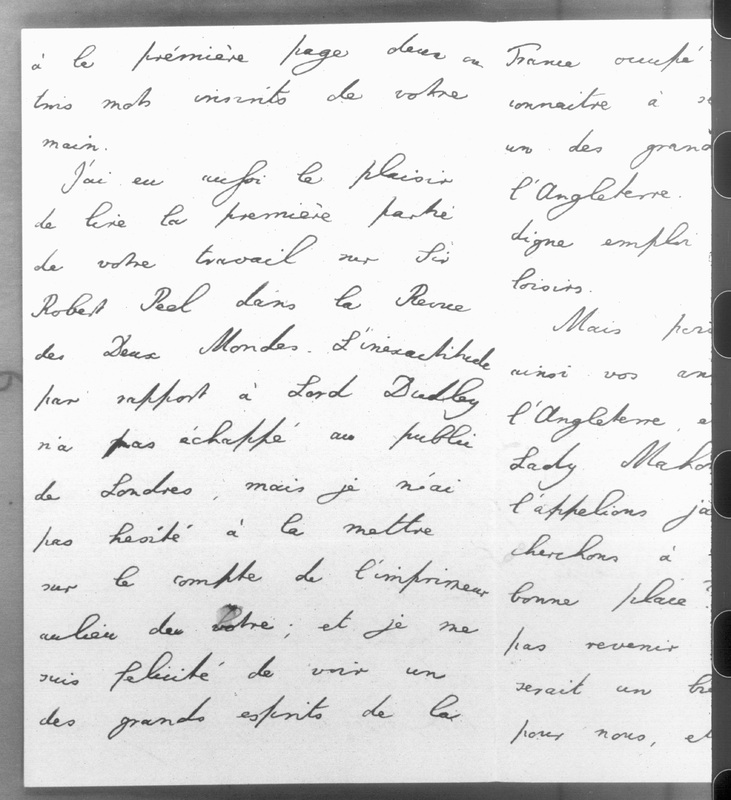 à la prémière page deux ou
trois mots inscrits de votre
main.
J'ai eu aussi le plaisir
de lire la première partie
de votre travail sur Sir
Robert Peel dans la Revue
des Deux Mondes. L'inexactitude
par rapport à Lord Dudley
n'a pas échappé au public
de Londres, mais je n'ai
pas hesité à la mettre
sur le compte de l'imprimeur
au lieu du votre; et je me
suis felicité de voir un
des grands esprits de la
France occupé
connaitre à
un des grand
l'Angleterre.
digne emploi
loisirs.
Mais
ainsi vos
l'Angleterre,
Lady Mahon
l'appelions
cherchons à
bonne place?
pas revenir
serait un
pour nous, et